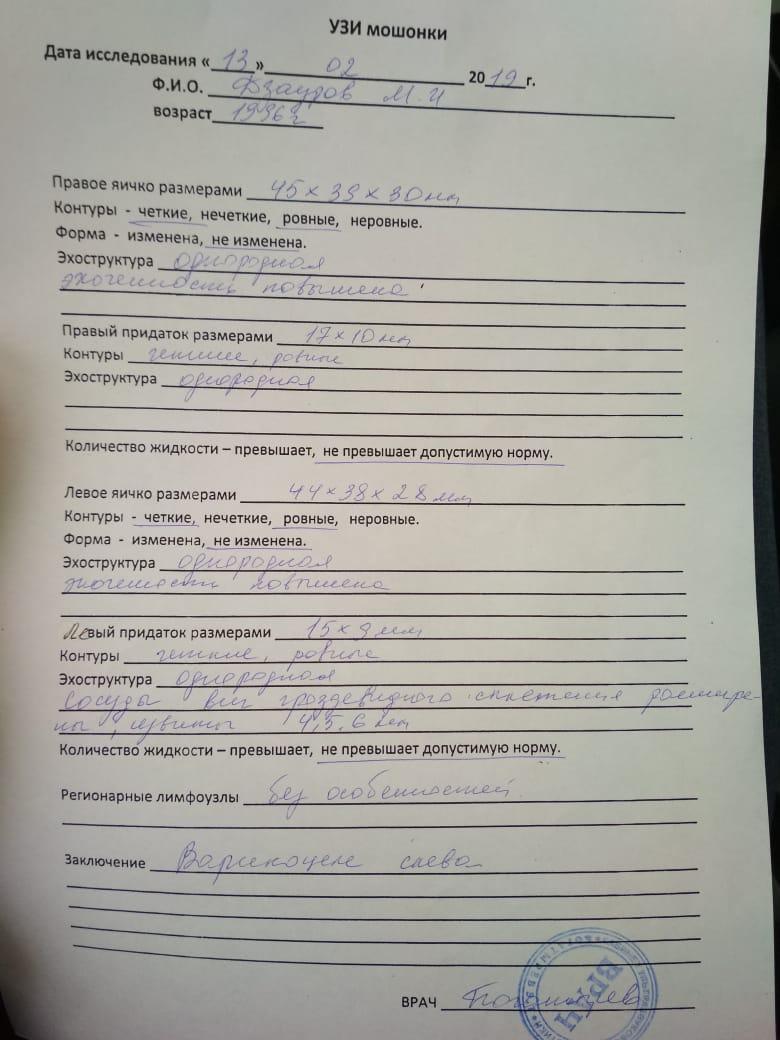 УЗИ мошонки
Дата исследования «13» 02 2019 г.
Ф.И.О. Дзауров М.И
возраст 1996г
Правое яичко размерами 45×39×30мм
Контуры - четкие, нечеткие, ровные, неровные.
Форма - изменена, не изменена.
Эхоструктура однородная
эхогенность повышена
Правый придаток размерами 17×10мм
Контуры четкие, ровные
Эхоструктура однородная
Количество жидкости – превышает, не превышает допустимую норму.
Левое яичко размерами 44×38×28мм
Контуры - четкие, нечеткие, ровные, неровные.
Форма - изменена, не изменена.
Эхоструктура однородная
эхогенность повышена
Левый придаток размерами 15×9мм
Контуры четкие, ровные
Эхоструктура однородная
Сосуды вен гроздевидного сплетения расшире-
ны, извиты 4,5.6мм
Количество жидкости – превышает, не превышает допустимую норму.
Регионарные лимфоузлы без особенностей
Заключение Варикоцеле слева
ВРАЧ
ВРАЧ